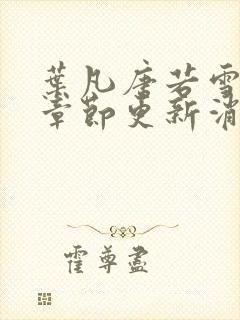 葉凡唐若雪
章節更新消
霍尊盡